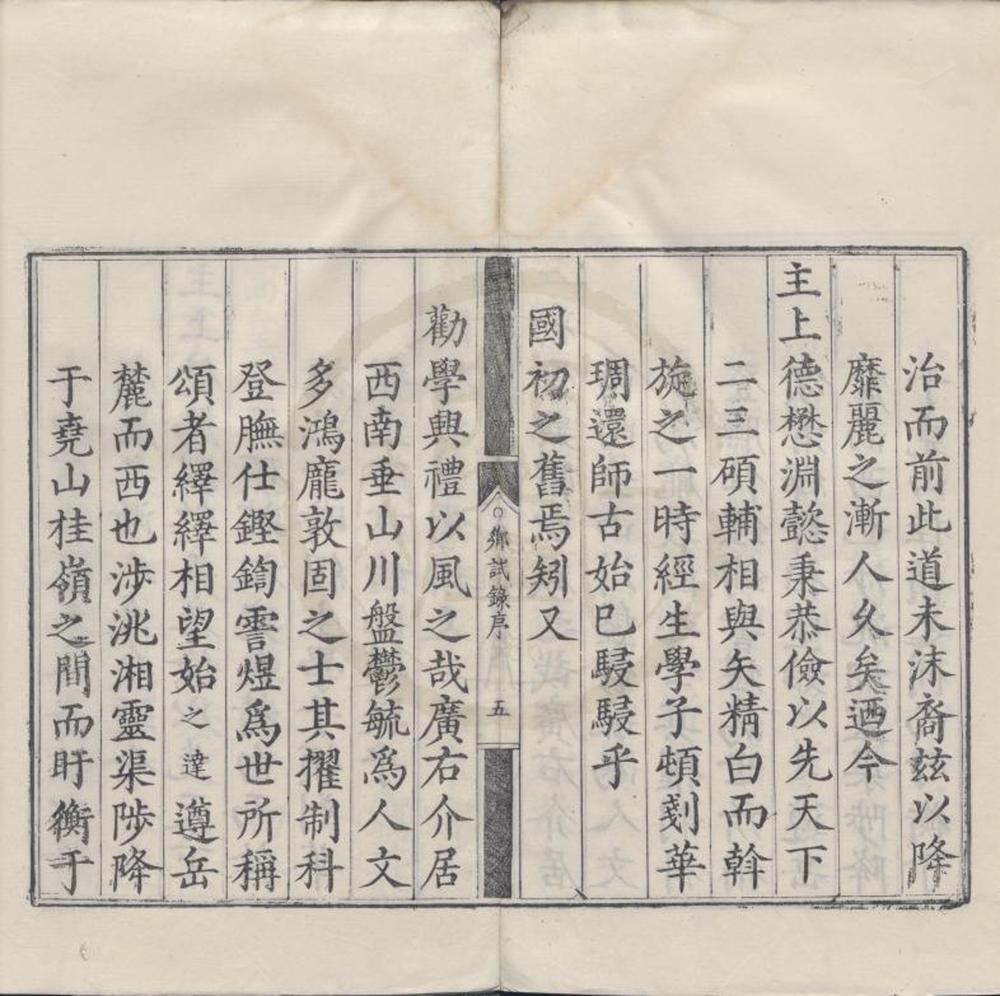 治而前此道未沫裔玆以降
靡麗之漸人久矣迺今
主上德懋淵懿秉恭儉以先天下
二三碩輔相與矢精白而斡
旋之一時經生學子頓剗華
琱還師古始巳駸駸乎
國初之舊焉矧又
鄉試錄序
五
勸學興禮以風之哉廣右介居
西南垂山川盤鬱毓爲人文
多鴻龐敦固之士其擢制科
登膴仕鏗鍧霅煜爲世所稱
頌者繹繹相望始之達遵岳
麓而西也涉洮湘靈渠陟降
于堯山桂嶺之間而盱衡于